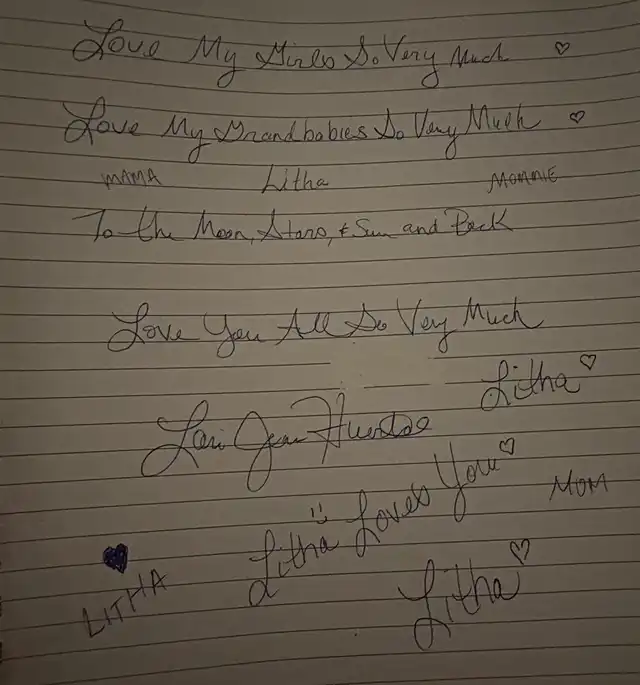 Love My Girls So Very Much ♡
Love My Grandbabies So Very Much ♡
MAMA Litha MOMMIE
To the Moon, Stars, & Sun and Back
Love You All So Very Much
Litha ♡
Lari Jean
Litha Loves You ♡
MOM
LITHA
Litha ♡